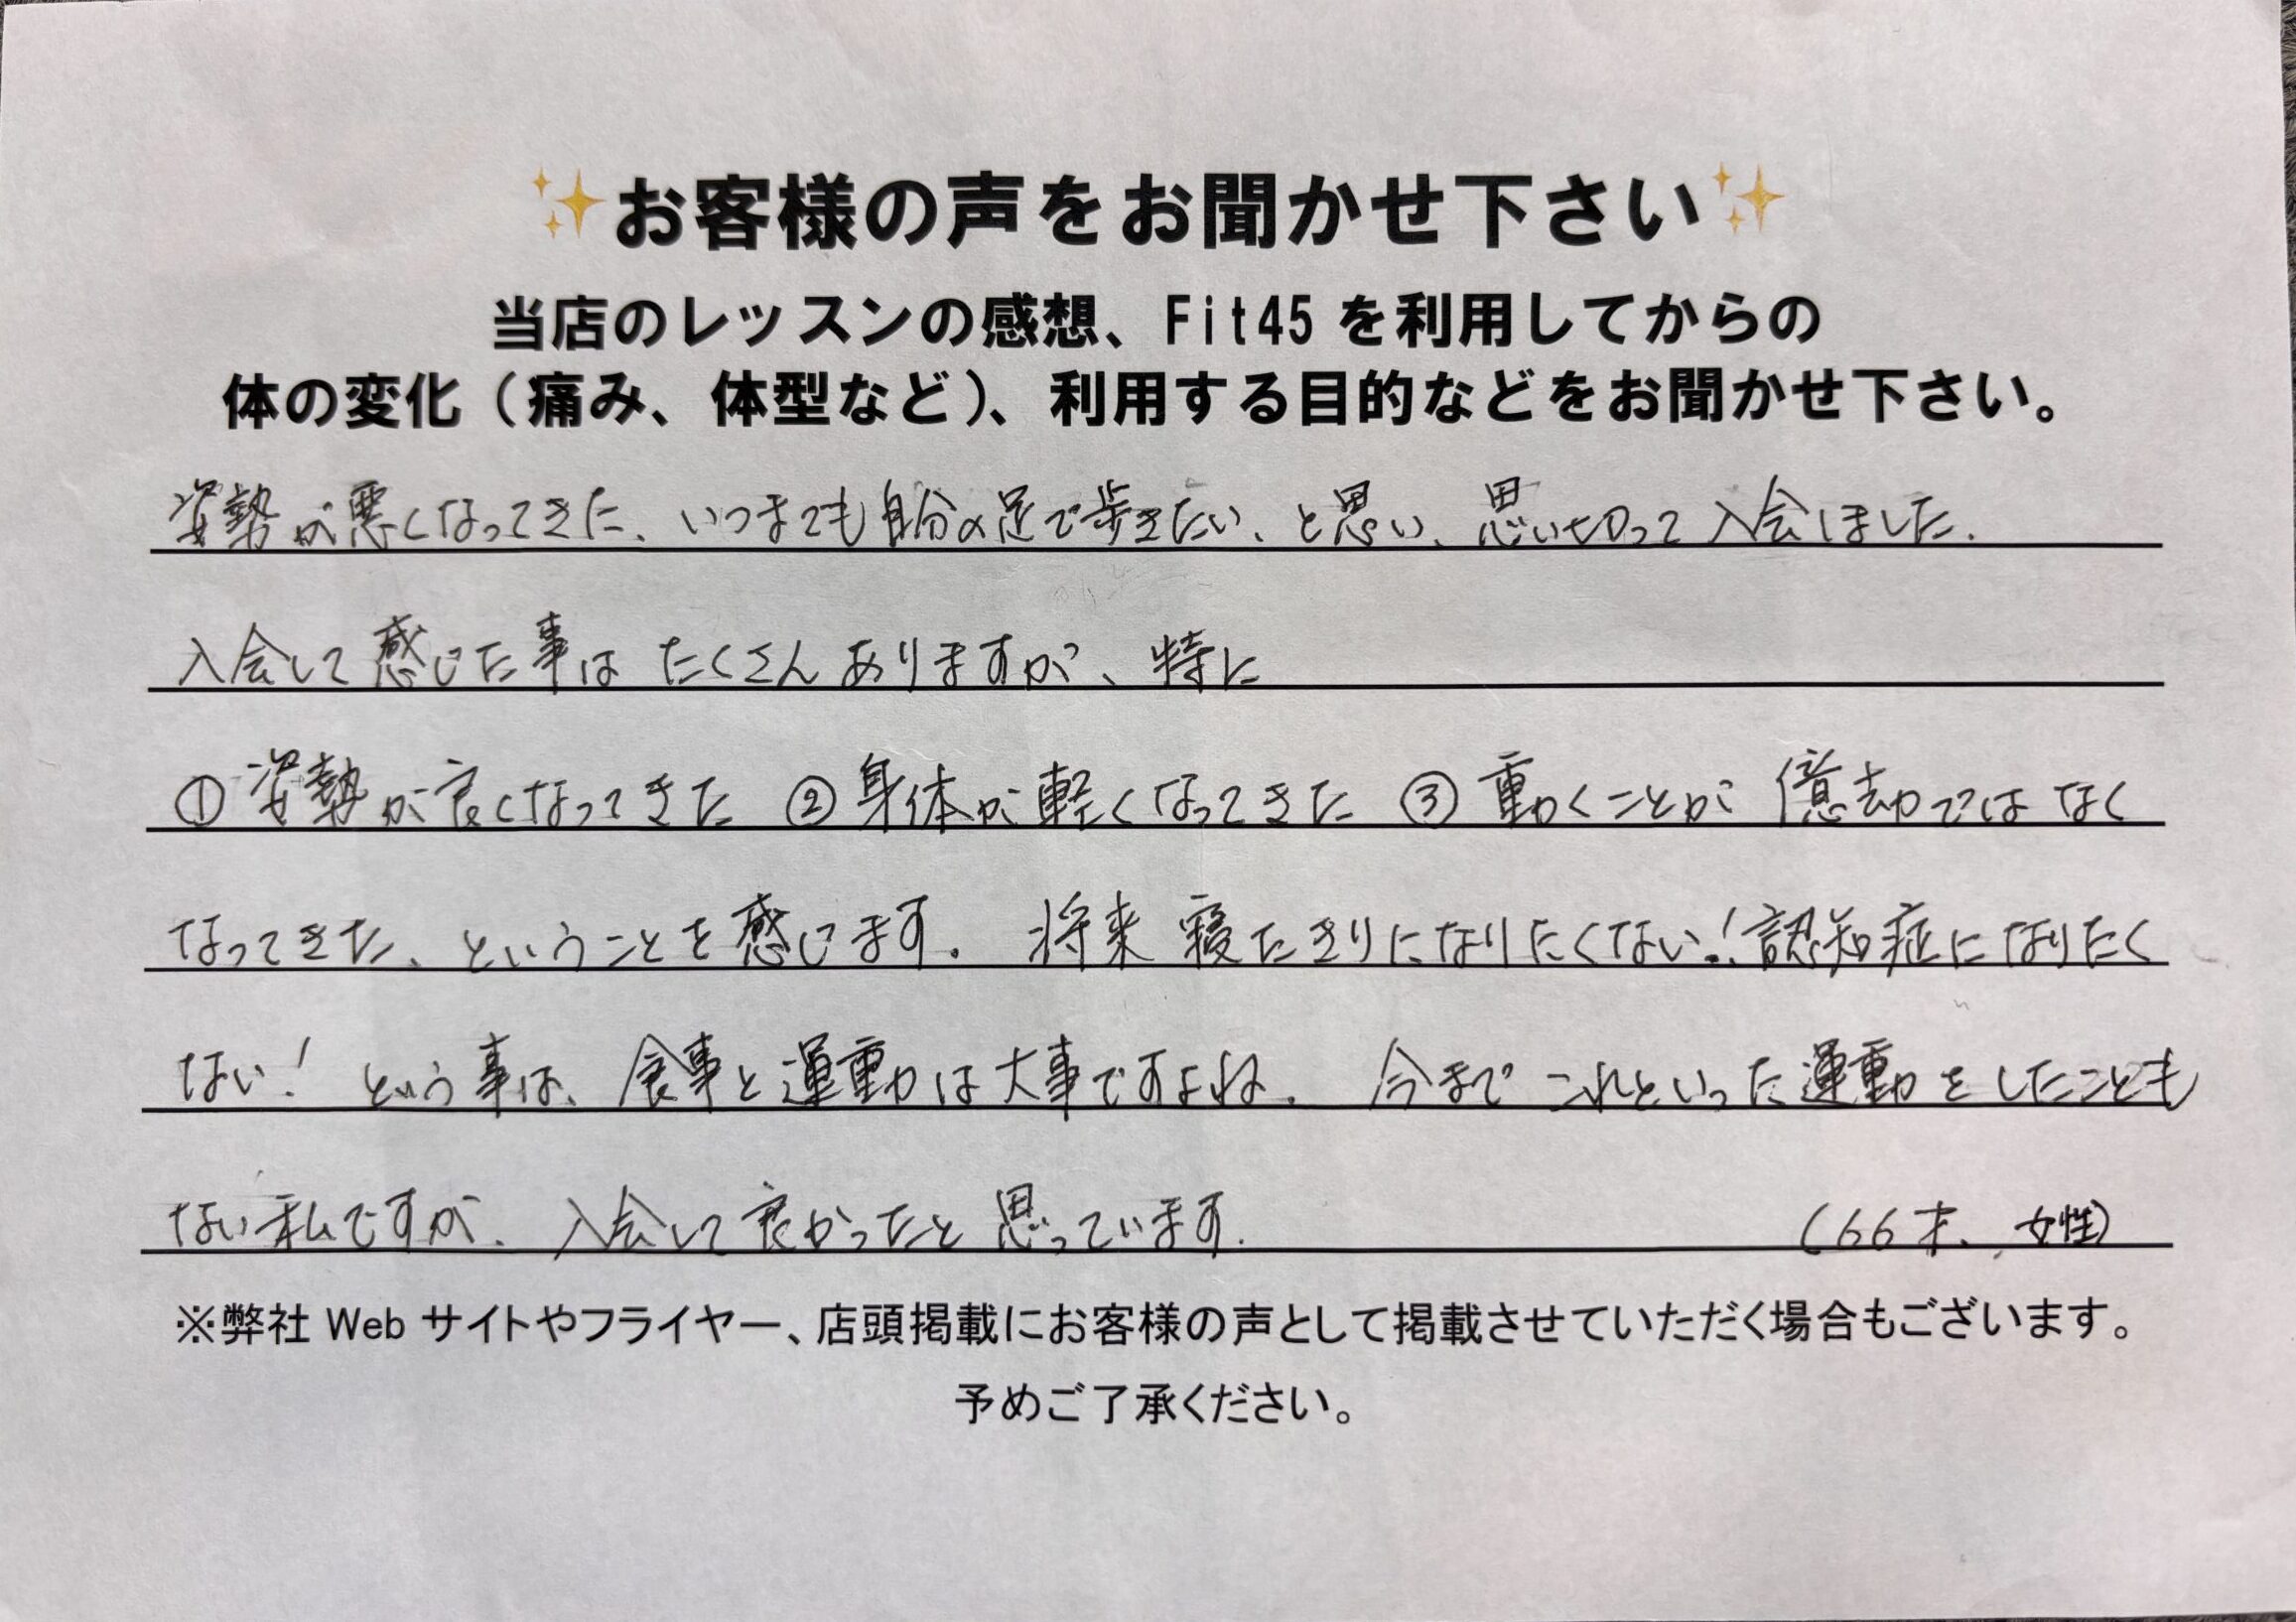 ✨お客様の声をお聞かせ下さい✨
当店のレッスンの感想、Fit45 を利用してからの
体の変化（痛み、体型など）、利用する目的などをお聞かせ下さい。
姿勢が悪くなってきた、いつまでも自分の足で歩きたい、と思い、思い切って入会しました.
入会して感じた事は たくさん ありますが、特に
①姿勢が良くなってきた ②身体が軽くなってきた ③動くことが 億劫ではなく
なってきた、ということを感じます. 将来 寝たきりになりたくない!認知症になりたく
ない! という事は、食事と運動は大事ですよね. 今まで これといった運動をしたことも
ない私ですが、入会して良かったと思っています.
(66才、女性)
※弊社 Web サイトやフライヤー、店頭掲載にお客様の声として掲載させていただく場合もございます。
予めご了承ください。